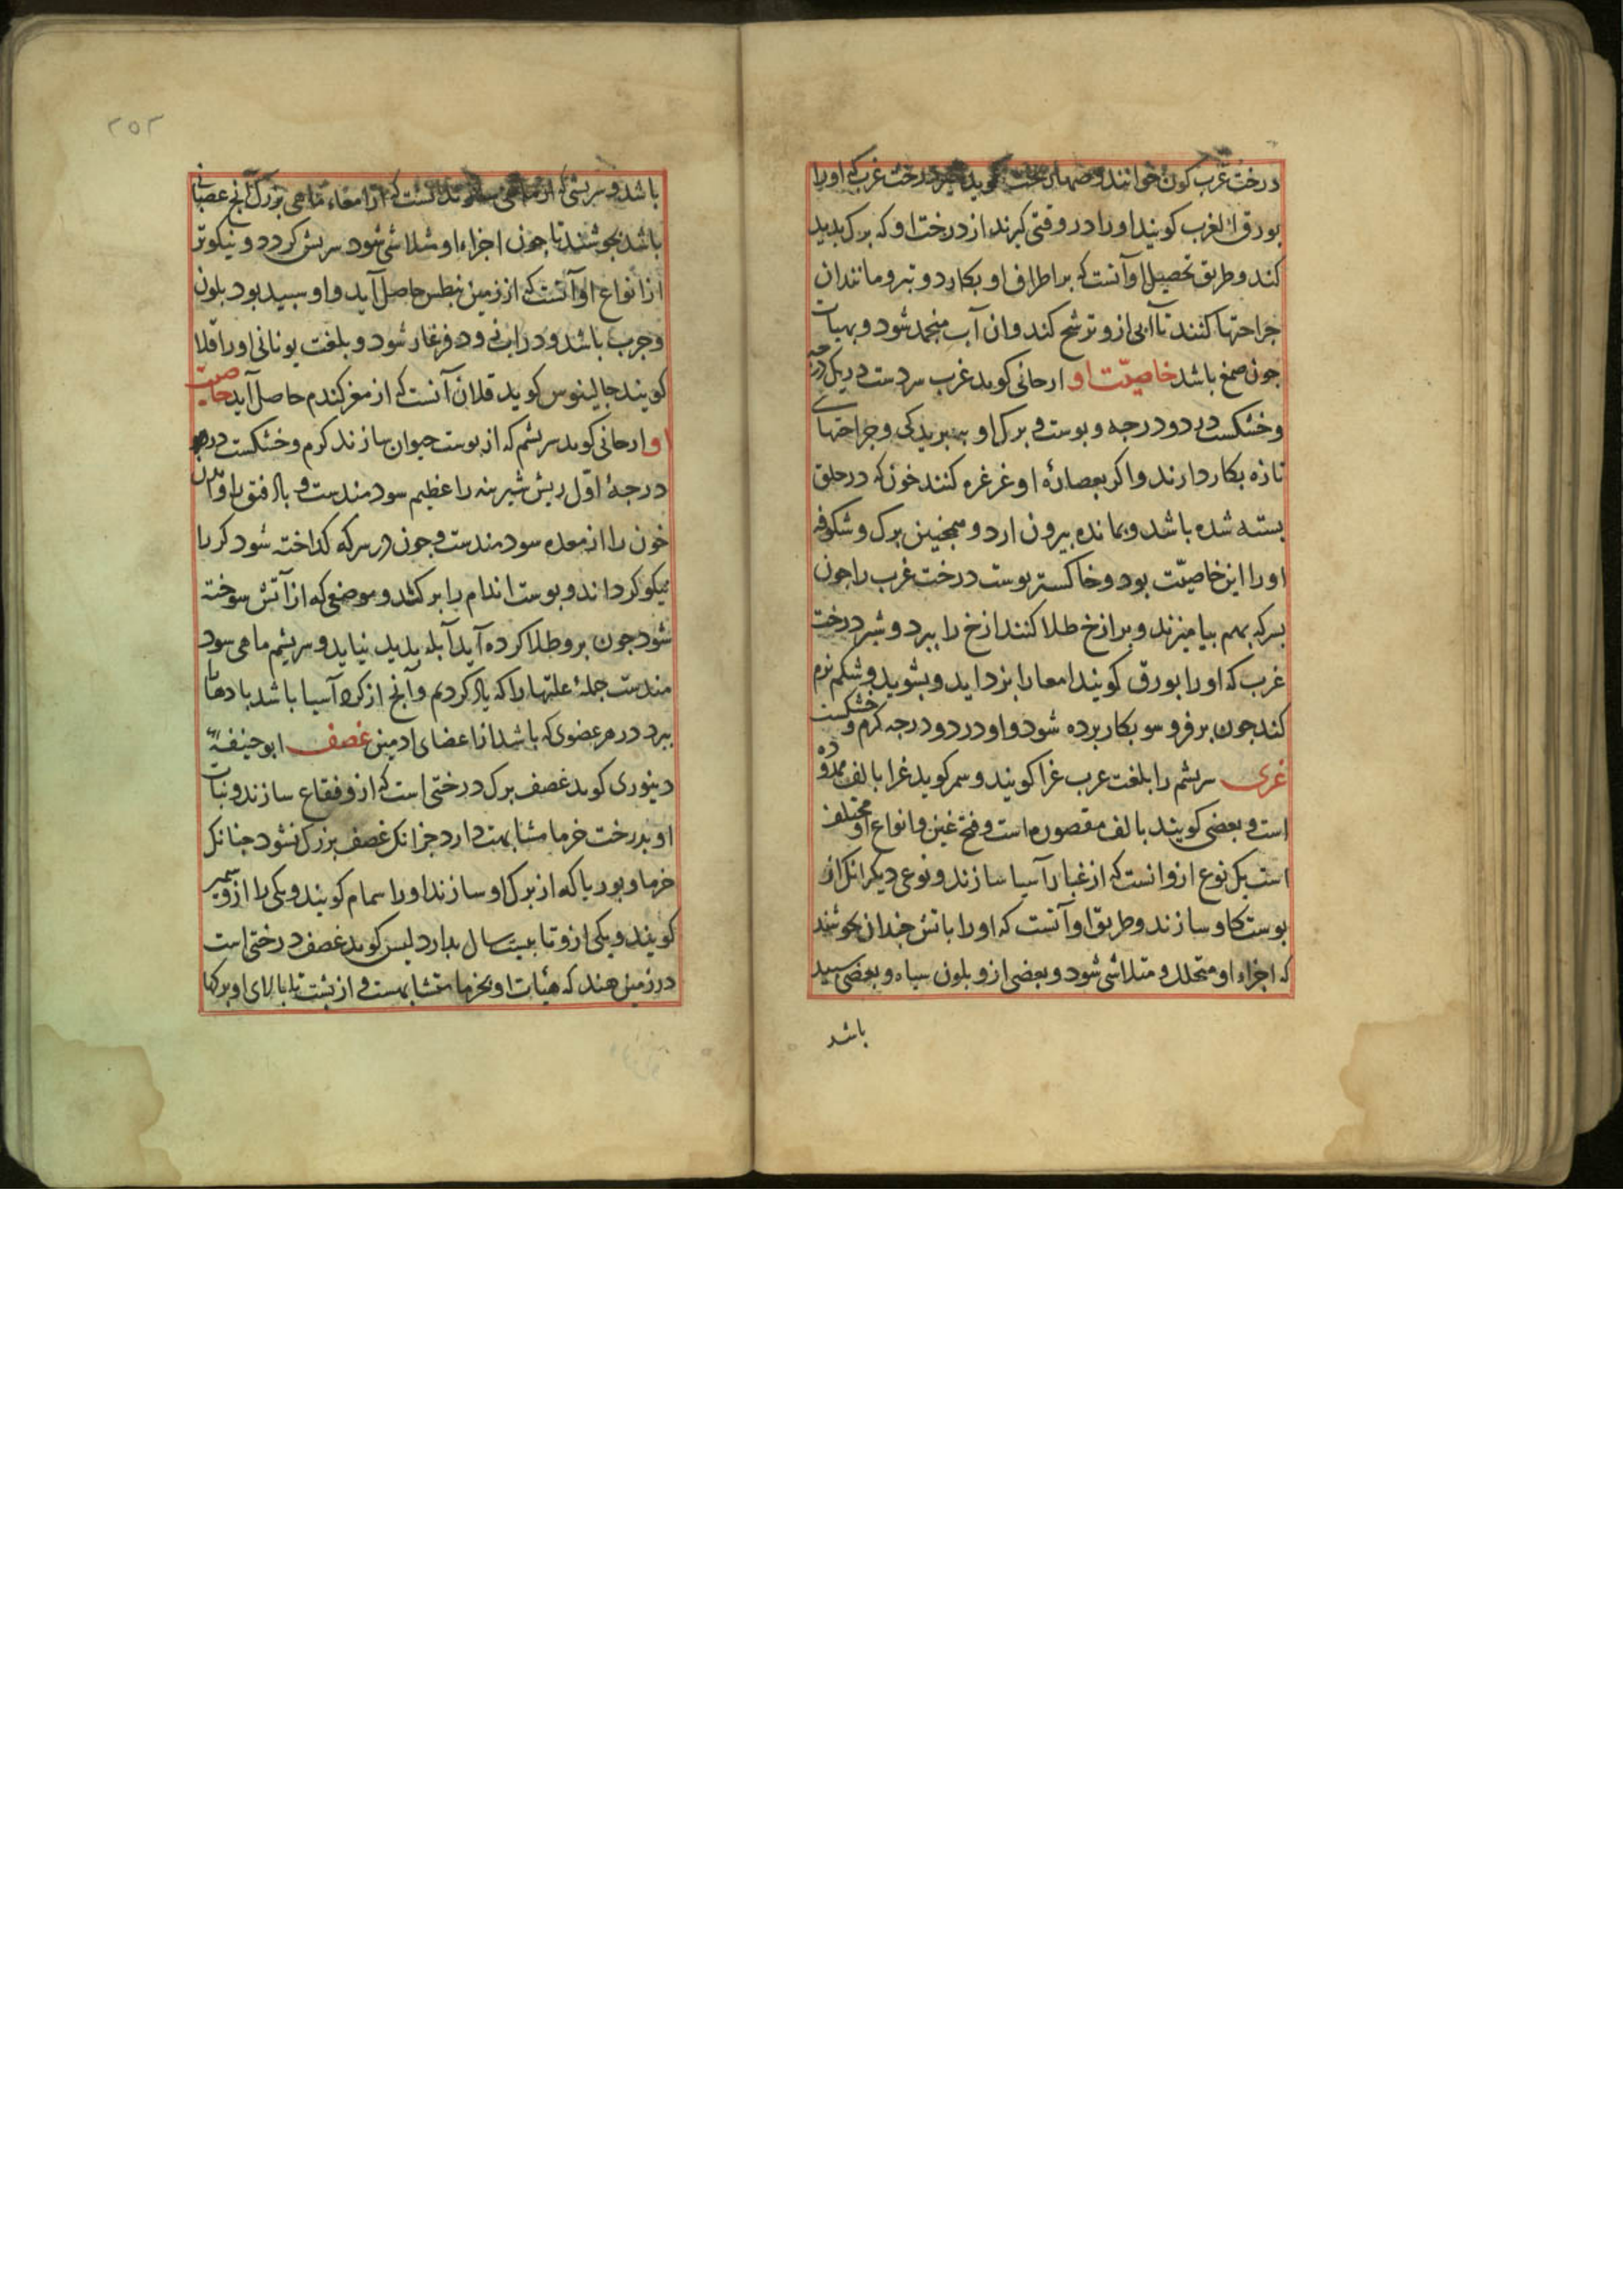 درخت غرب کون خوانند و درخت غرب که اورا
بورق الغرب کویند اورا در وقتی کیرند از درخت او که برک بدید
کند و طریق تحصیل او آنست که بر اطراف او بکارد و تبر و مانند ان
جراحتها کنند تا آبی ازو ترشح کند و ان آب منجمد شود و بهیات
جون صمغ باشد خاصیّت او ارجانی کوید غرب سردست در یک درجه
و خشکست در دو درجه و بوست و برک او و جراحتهاے
تازه بکار دارند و اکر بعصارۀ او غرغره کنند خون که در حلق
بسته شده باشد و بمانده بیرون ارد و همجنین برک و شکوفه
اورا این خاصیّت بود و خاکستر بوست درخت غرب را جون
بسرکه بهم بیامیزند و بر ازخ طلا کنند ازخ را ببرد و شیر درخت
غرب که اورا بورق کویند امعا را بزداید و بشوید و شکم نرم
کند جون بر فرو سو بکار برده شود و او در دو درجه کرم و خشکست
غری سریشم را بلغت عرب غرا کویند و سمر کوید غرا بالف ممدوده
است و بعضی کویند بالف مقصوره است و فتح غین و انواع او مختلف
است یک نوع ازو انست که از غبار آسیا سازند و نوعی دیکر انک از
بوست کاو سازند و طریق او آنست که اورا باتش جندان بجوشند
که اجزاء او متحلل و متلاشی شود و بعضی ازو بلون سیاه و بعضی سبید
باشد
۲۵۲
باشد و سریشی که از ماهی سازند انست که از امعاء ماهی بزرک آنج عصبانی
باشد بجوشند تا جون اجزاء او متلاشی شود سریش کردد و نیکوتر
از انواع او آنست که از زمین نبطس حاصل آید و او سبید بود بلون
و جرب باشد و دراب زود فرغار شود و بلغت یونانی اورا قلا
کویند جالینوس کوید قلان آنست که از مغز کندم حاصل آید خاصیت
او ارجانی کوید سریشم که از بوست حیوان سازند کرم و خشکست در
درجۀ اوّل ریش شیرینه را عظیم سودمندست و باد فتق را و
خون را از معده سودمندست و جون در سرکه کداخته شود کر را
نیکو کرداند و بوست اندام را بر کشد و موضعی که از آتش سوخته
شود جون برو طلا کرده آید آبله بدید نیاید و سریشم ماهی سود
مندست جملۀ علتها را که یاد کردیم و آنج از کرد آسیا باشد بادها را
ببرد در هر عضوی که باشد از اعضای ادمین غصف ابو حنیفۀ
دینوری کوید غصف برک درختی است که ازو فقاع سازند و نبات
او بدرخت خرما مشابهت دارد جز انک غصف بزرک نشود جنانک
خرما و بوریا که از برک او سازند اورا سمام کویند و یکی را ازو
کویند و یکی ازو تا بیست سال بدارد لیس کوید غصف درختی است
در زمین هند که هیئات او بخرما متشابهست و از بشت تا بالای او برکها